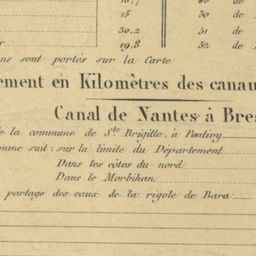 15 30 de
30.2 31 de
19.8 32 de
ns sont portés sur la Carte
ement en Kilomètres des canau
Canal de Nantes à Bre
e la commune de S.te Brigitte, à Pontivy
mme suit: sur la limite du Département
Dans les côtes du nord
Dans le Morbihan
partage des eaux de la rigole de Bara